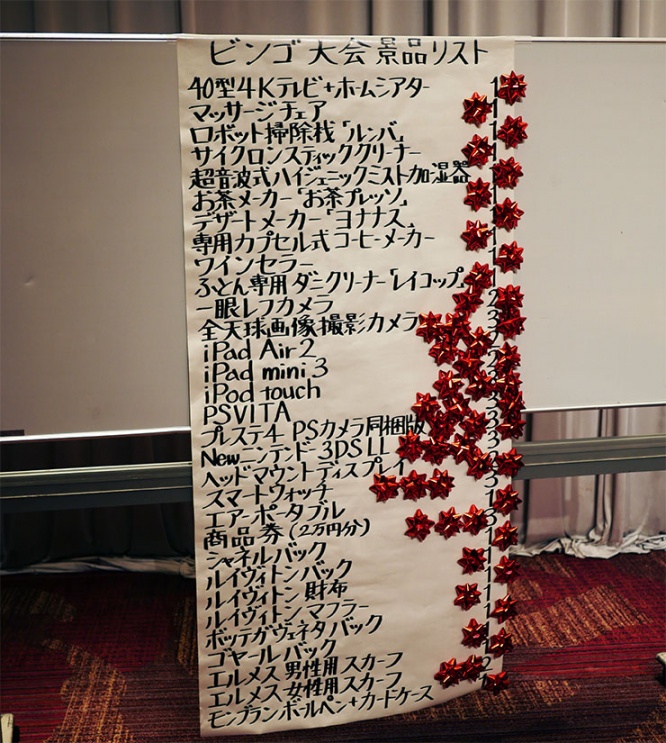 ビンゴ大会景品リスト
40型4Kテレビ+ホームシアター 1
マッサージチェア 1
ロボット掃除機「ルンバ」 1
サイクロンスティッククリーナー 1
超音波式ハイジェニックミスト加湿器
お茶メーカー「お茶プレッソ」
デザートメーカー「ヨナナス」
専用カプセル式コーヒーメーカー
ワインセラー
ふとん専用ダニクリーナー「レイコップ」
一眼レフカメラ
全天球画像撮影カメラ
iPad Air2
iPad mini3
iPod touch
PSVITA
プレステ4 PSカメラ同梱版
Newニンテンドー3DS LL
ヘッドマウントディスプレイ
スマートウォッチ
エアーポータブル
商品券(2万円分)
シャネルバック
ルイヴィトンバック
ルイヴィトン財布
ルイヴィトンマフラー
ボッテガヴェネタバック
ゴヤールバック
エルメス男性用スカーフ
エルメス女性用スカーフ
モンブランボールペン+カードケース